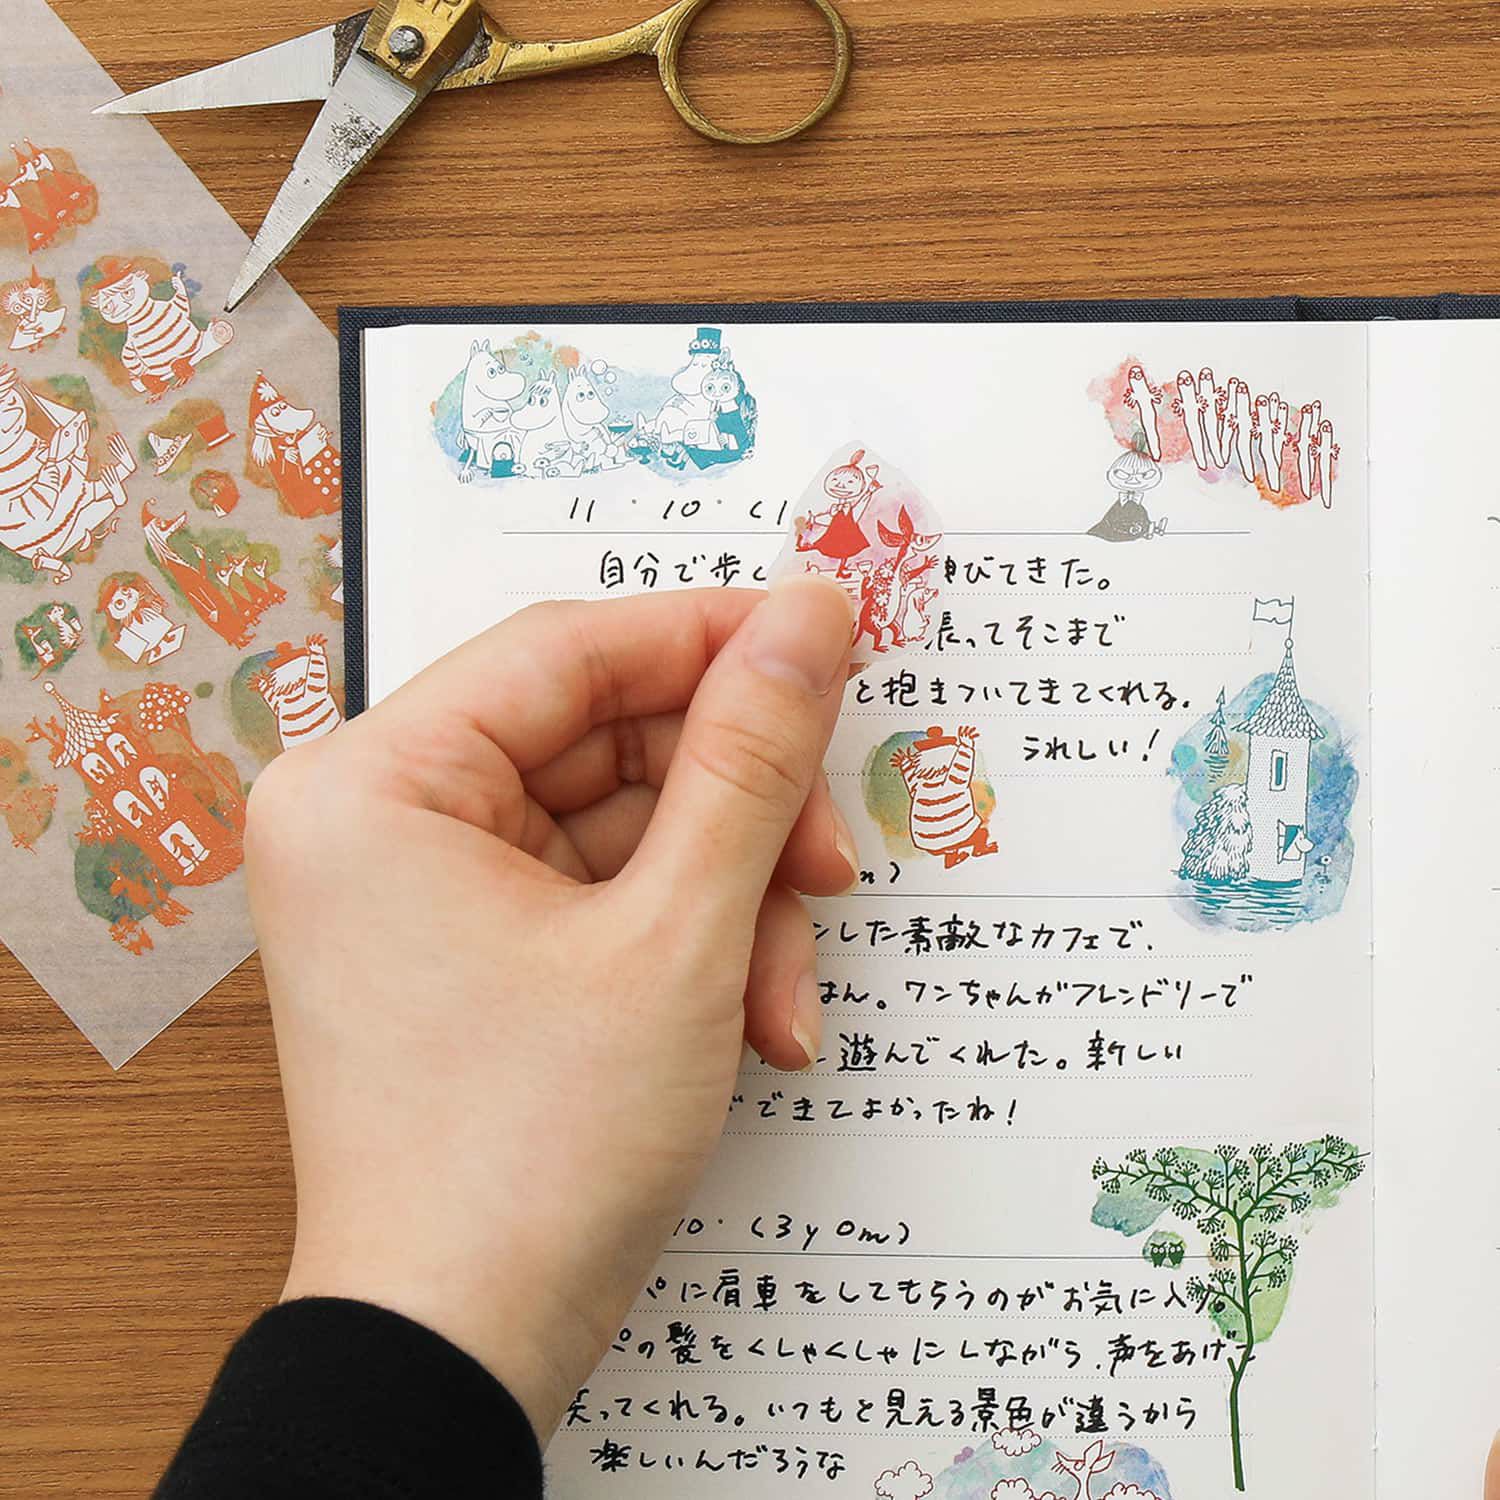 11・10・(1
自分で歩く 伸びてきた。
張ってそこまで
と抱きついてきてくれる。
うれしい!
m)
した素敵なカフェで、
はん。ワンちゃんがフレンドリーで
遊んでくれた。新しい
できてよかったね!
10・(3y0m)
パに肩車をしてもらうのがお気に入り。
パの髪をくしゃくしゃにしながら、声をあげて
笑ってくれる。いつもと見える景色が違うから
楽しいんだろうな